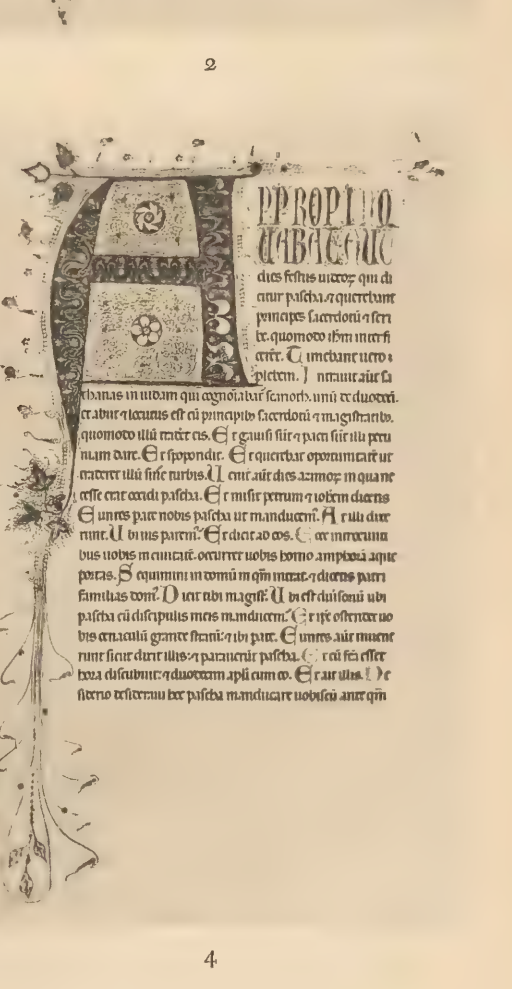 2
APPROPINQ
UABAT AUT̄
dies festus azimoꝝ qui di
citur pascha. ⁊ querebant
principes sacerdotū ⁊ scri
be. quomodo ihm̄ interfi
cerēt. Timebant uero
plebem. Intrauit aūt sa
thanas in iudam qui cognoīabat̄ scarioth. unū de duodecī.
et abiit ⁊ locutus est cū principib; sacerdotū ⁊ magistratib;.
quomodo illū traderet eis. Et gauisi sūt ⁊ pacti sūt illi pecu
niam dare. Et spopondit. Et querebat oportunitatē ut
traderet illū sine turbis. Uenit aūt dies azimoꝝ in qua ne
cesse erat occidi pascha. Et misit petrum ⁊ iohēm dicens
Euntes pate nobis pascha ut manducem̄. At illi dixe
runt. Ubi uis parem̄. Et dicit ad eos. Ecce introeunti
bus uobis in ciuitatē. occurret uobis homo amphorā aque
portās. Sequimini in domū in qm̄ intrat. ⁊ dicens patri
familias dom̄. Dicit tibi magist̄. Ubi est diuisoriū ubi
pascha cū discipulis meis manducem̄. Et ip̄e ostendet uo
bis cenaculū grande stratū: ⁊ ibi pate. Euntes aūt inuene
runt sicut dixit illis: ⁊ parauerūt pascha. Et cū fcā esset
hora discubuit: ⁊ duodecim apl̄i cum eo. Et ait illis. De
siderio desideraui hoc pascha manducare uobiscū ante qm̄
4